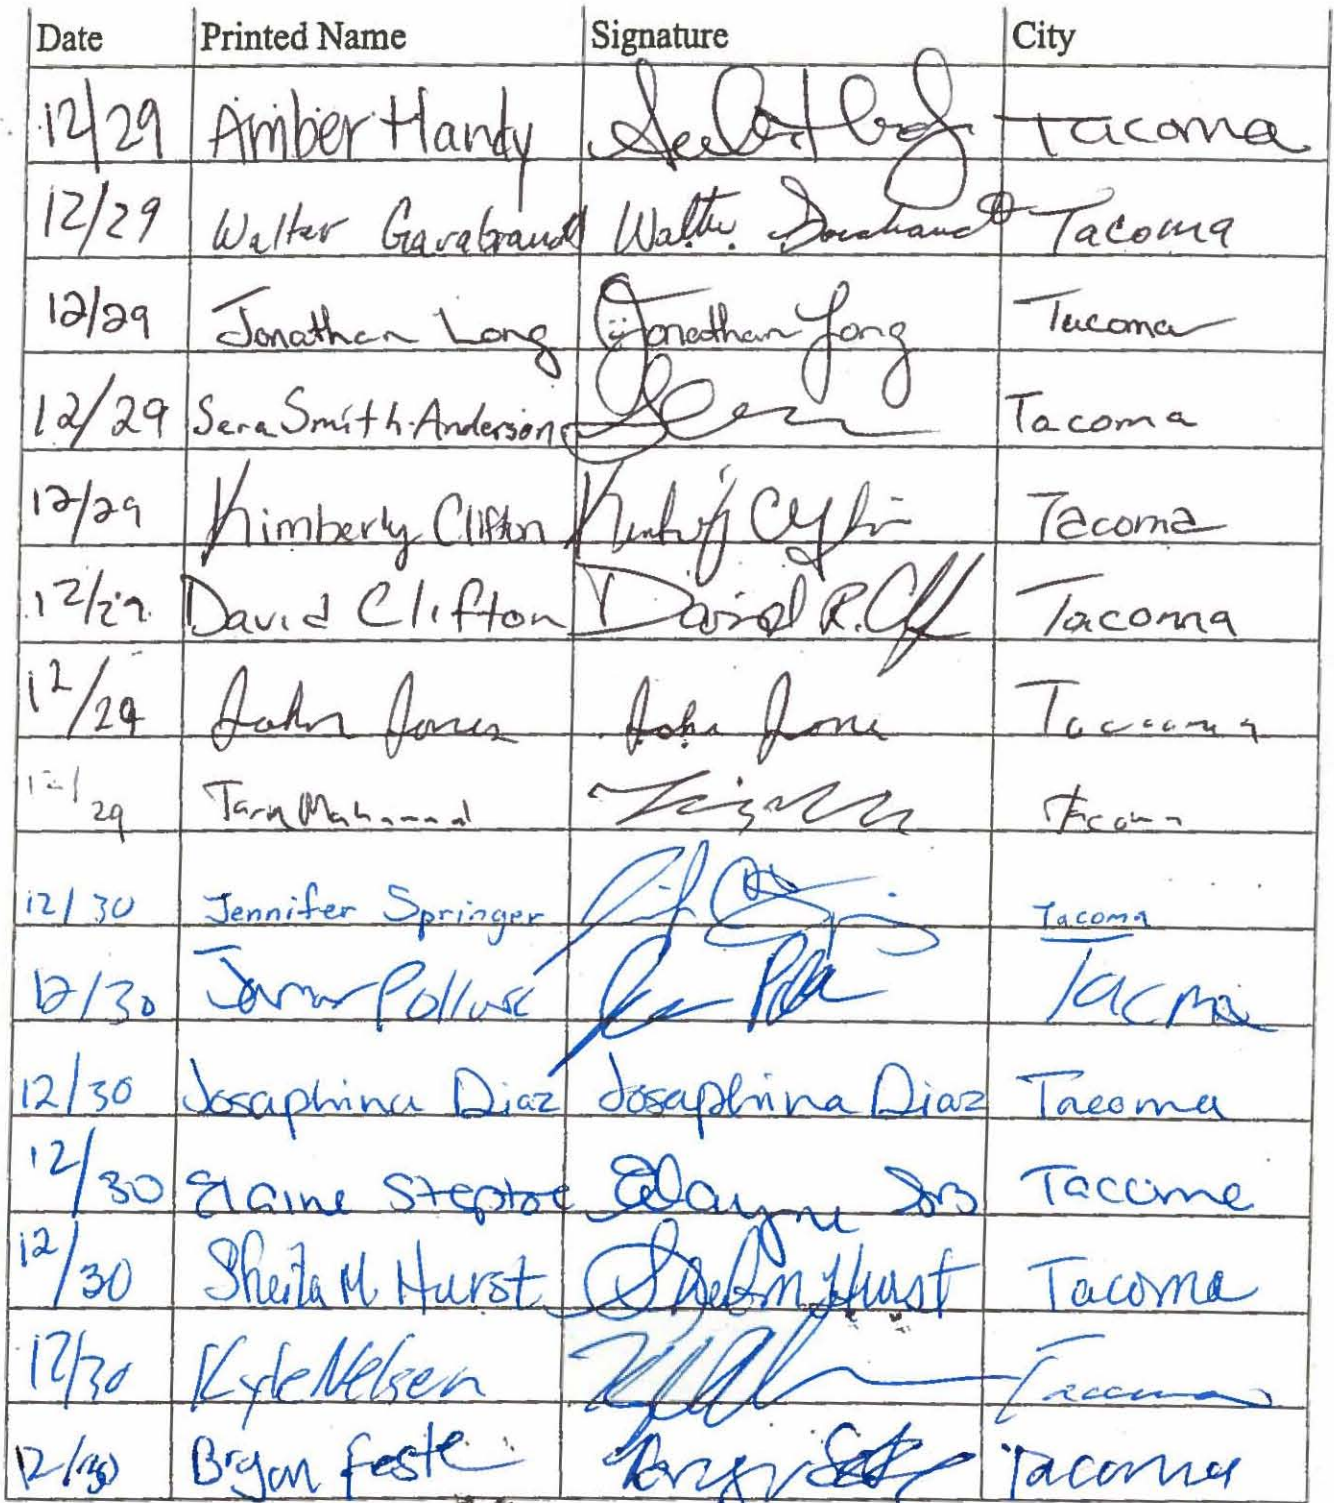 Date Printed Name Signature City
12/29 Amber Handy Tacoma
12/29 Walter Garabrandt Walter Tacoma
12/29 Jonathan Long Jonathan Long Tacoma
12/29 Sara Smith-Anderson Tacoma
12/29 Kimberly Clifton Tacoma
12/29 David Clifton David R. Tacoma
12/29 John Jones John Jone Tacoma
12/29 Tacoma
12/30 Jennifer Springer Tacoma
12/30 Tacma
12/30 Josaphina Diaz Josaphina Diaz Tacoma
12/30 Elaine Steptoe Tacoma
12/30 Sheila M Hurst Hurst Tacoma
12/30 Kyle Nelsen Tacoma
12/30 Bryan Feste Tacoma